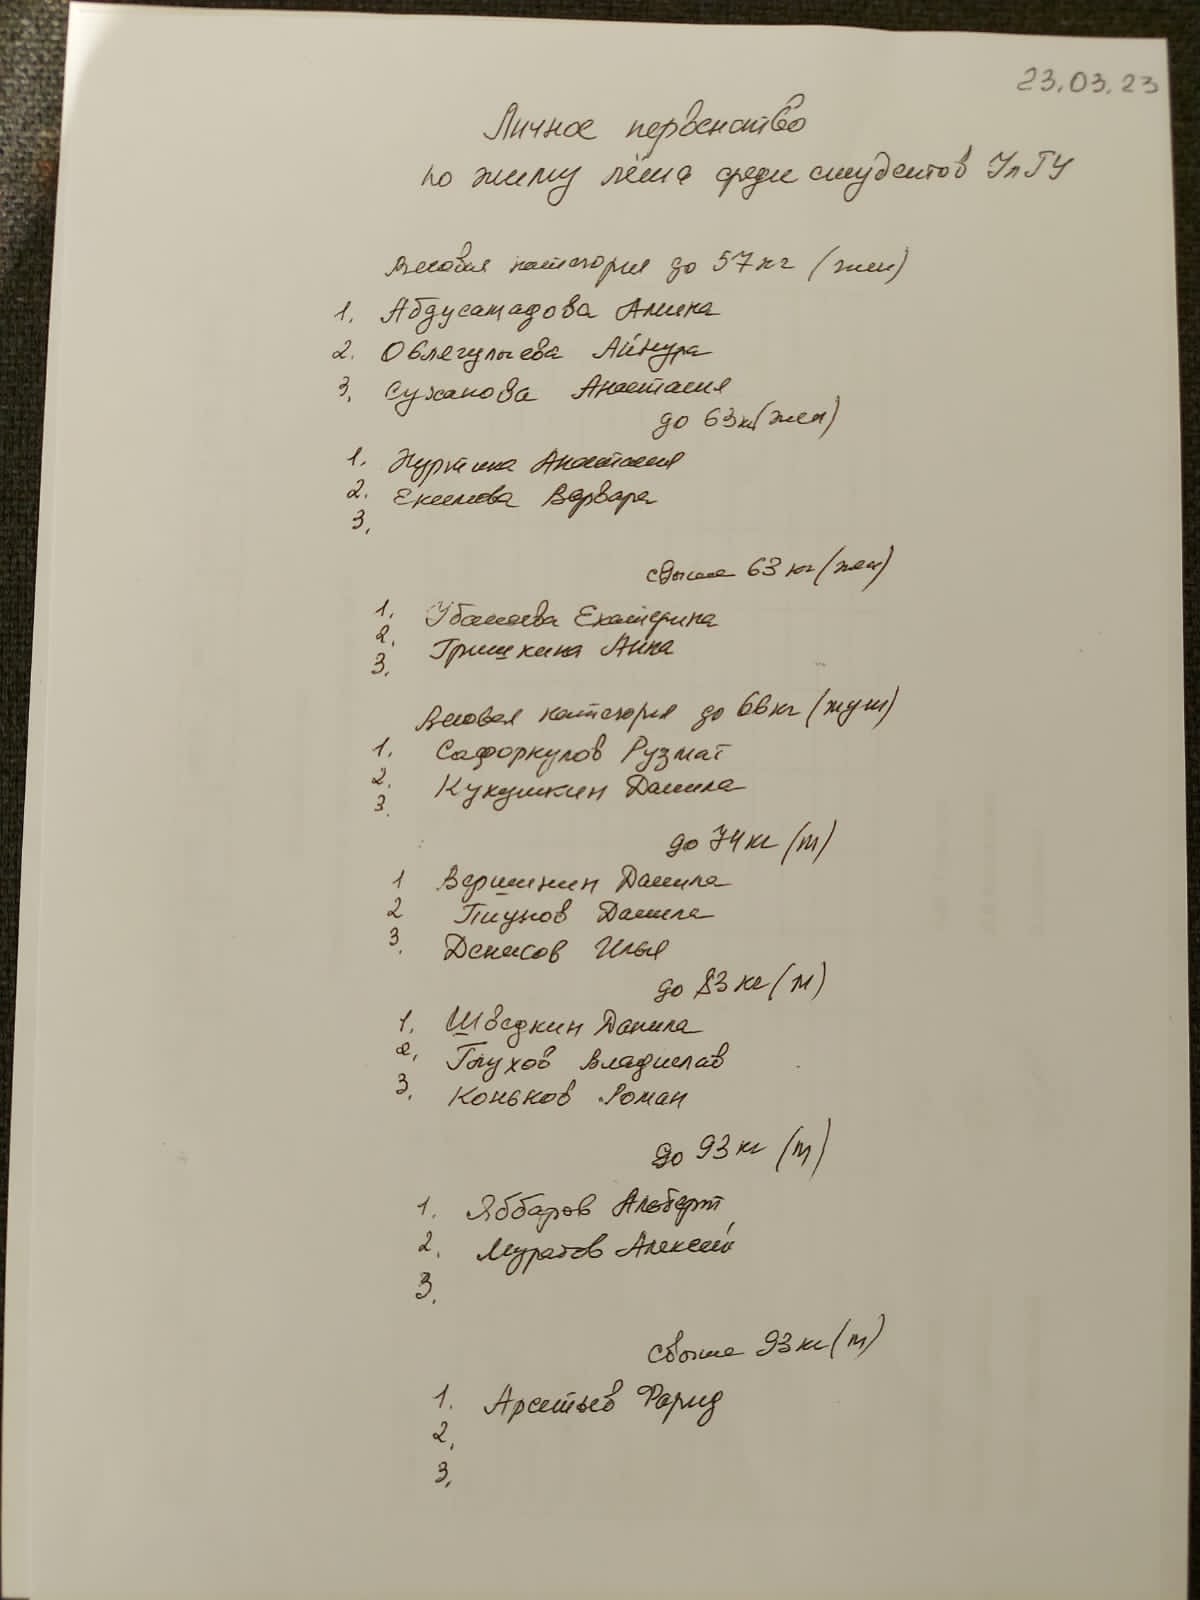 23.03.23
Личное первенство
по жиму лёжа среди студентов УлГУ
Весовая категория до 57 кг (жен)
1. Абдусамадова Амина
2. Овлягулыева Айнура
3. Суханова Анастасия
до 63 кг (жен)
1. Анастасия
2. Екимова Варвара
3.
свыше 63 кг (жен)
1. Екатерина
2. Гришкина Анна
3.
Весовая категория до 66 кг (муж)
1. Сафоркулов Рузмат
2. Кукушкин Данила
3.
до 74 кг (м)
1 Вершинин Данила
2 Данила
3. Денисов Илья
до 83 кг (м)
1. Шведкин Данила
2. Глухов Владислав
3. Коньков Роман
до 93 кг (м)
1. Яббаров Альберт
2. Муратов Алексей
3.
свыше 93 кг (м)
1. Арсетьев Фарид
2.
3.